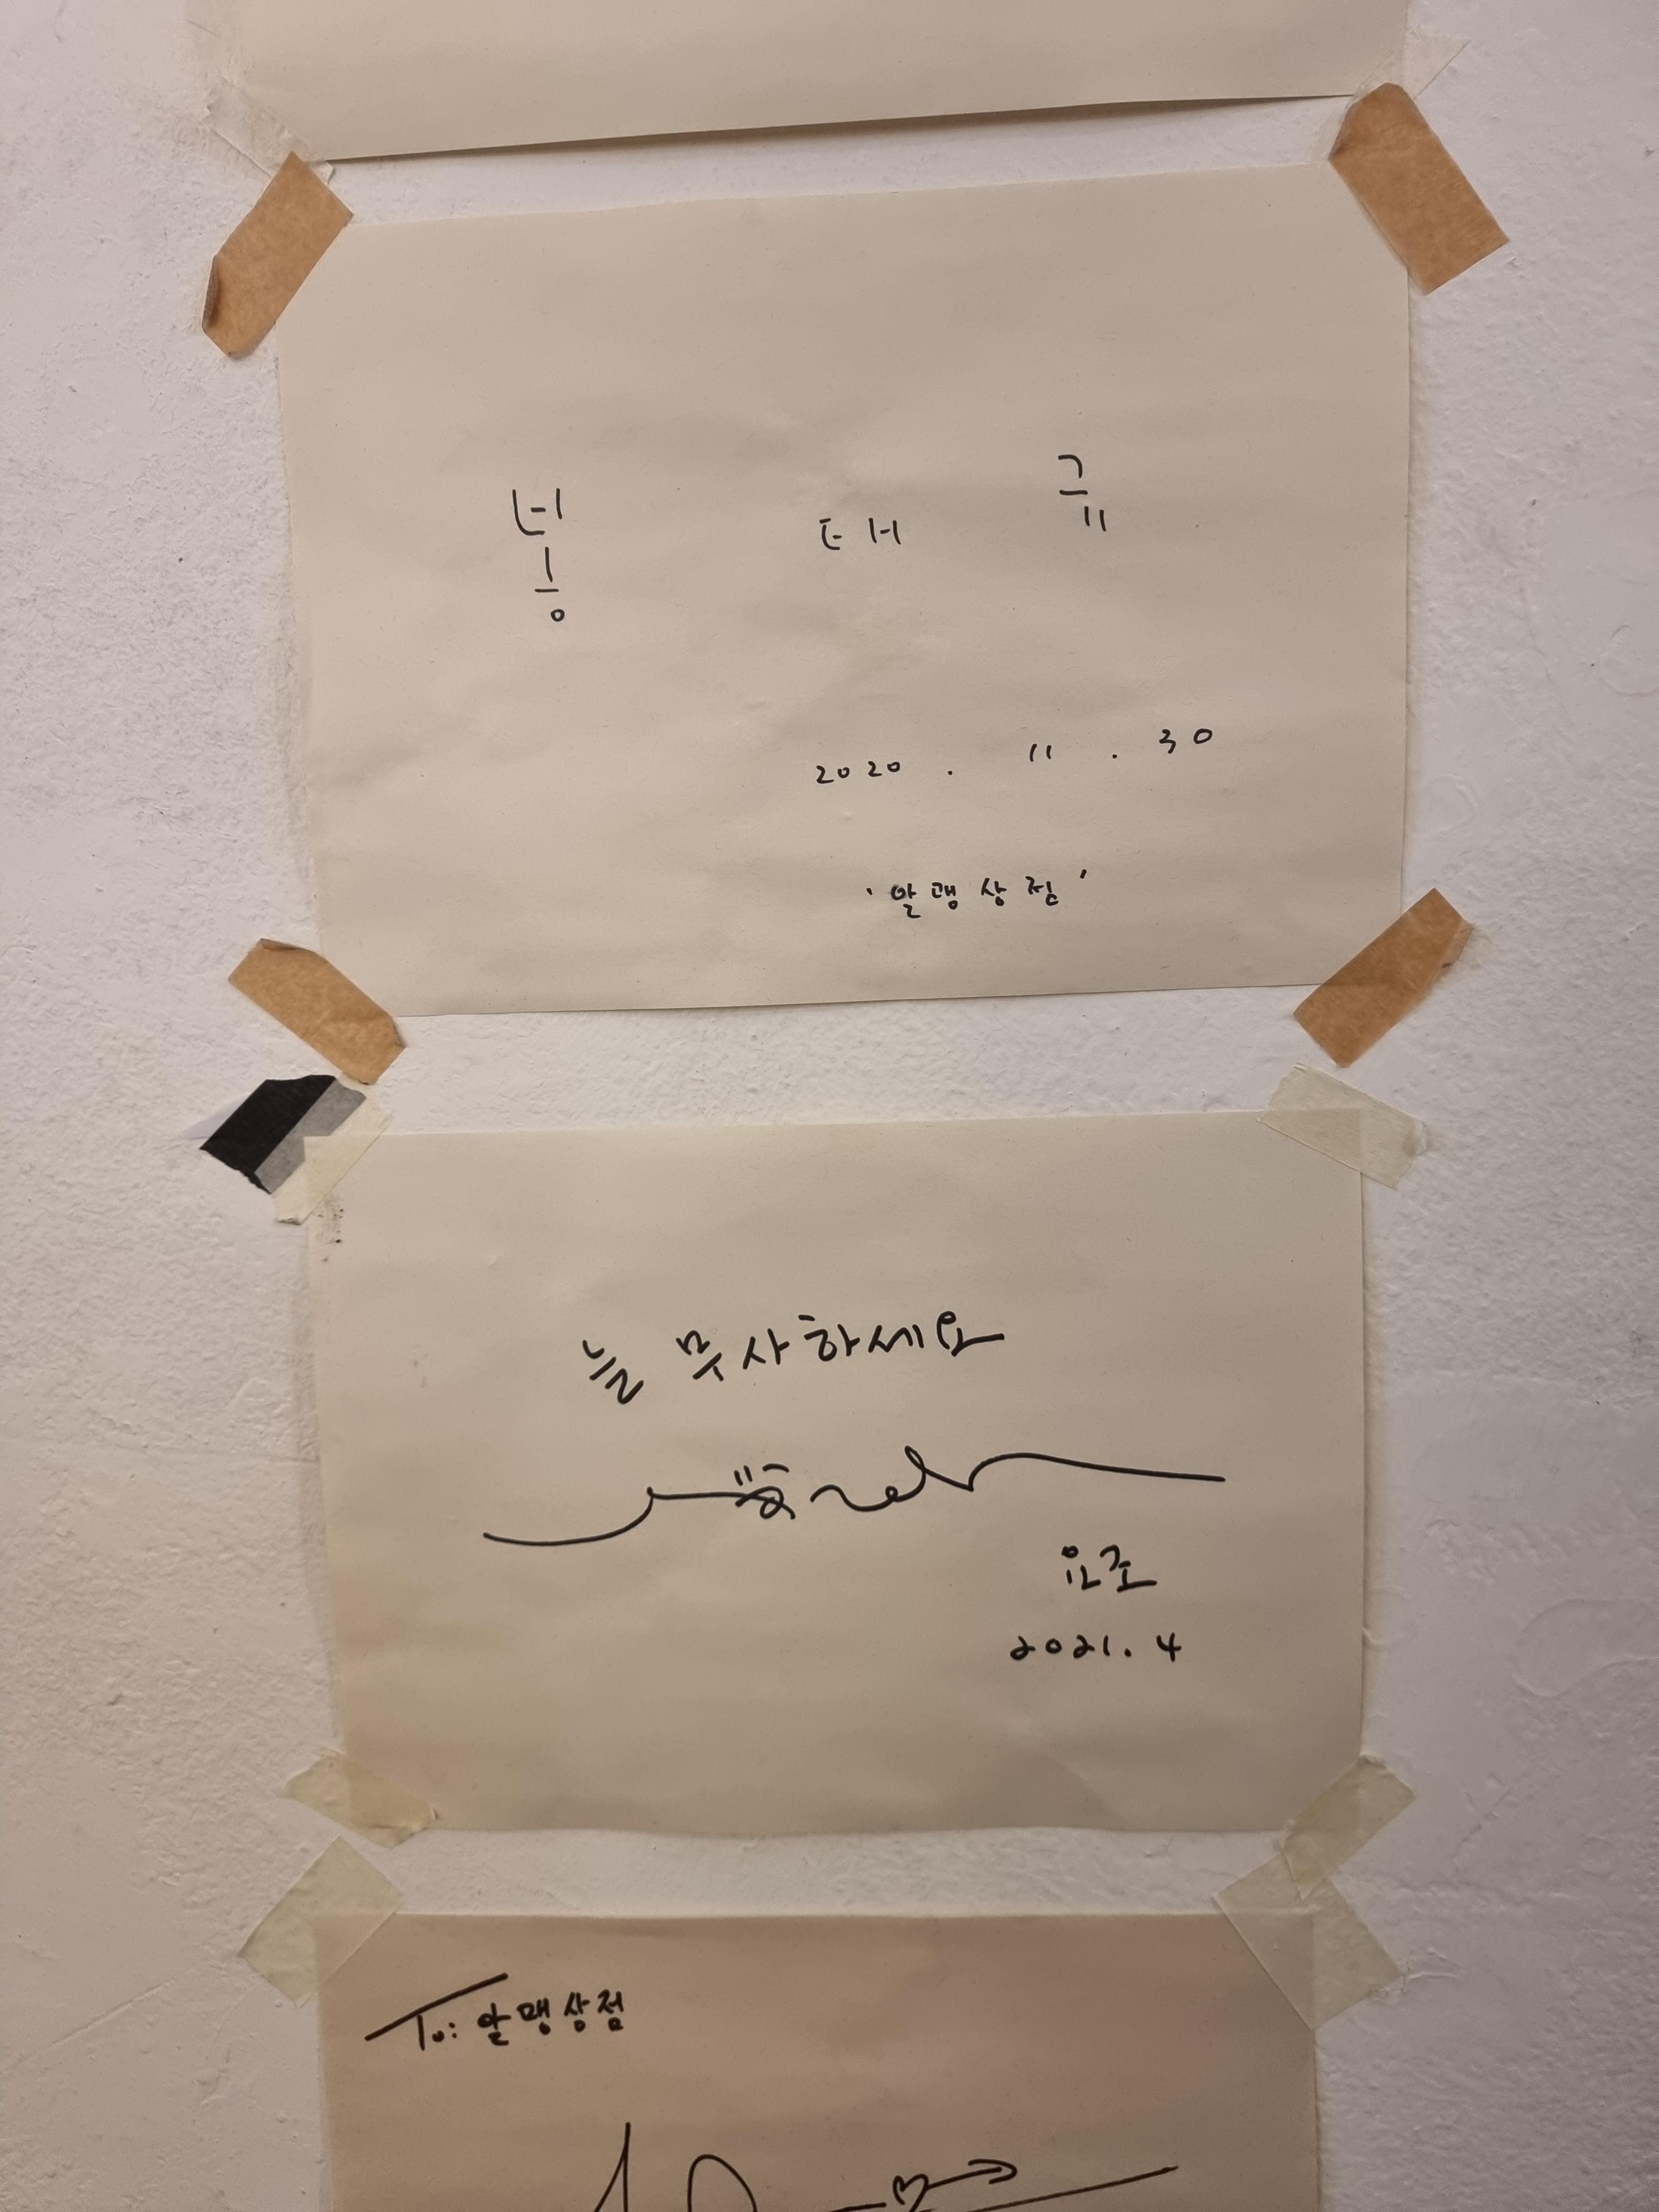 2020 . 11 . 30
'알맹상점'
늘 무사하세요
요조
2021. 4
To: 알맹상점